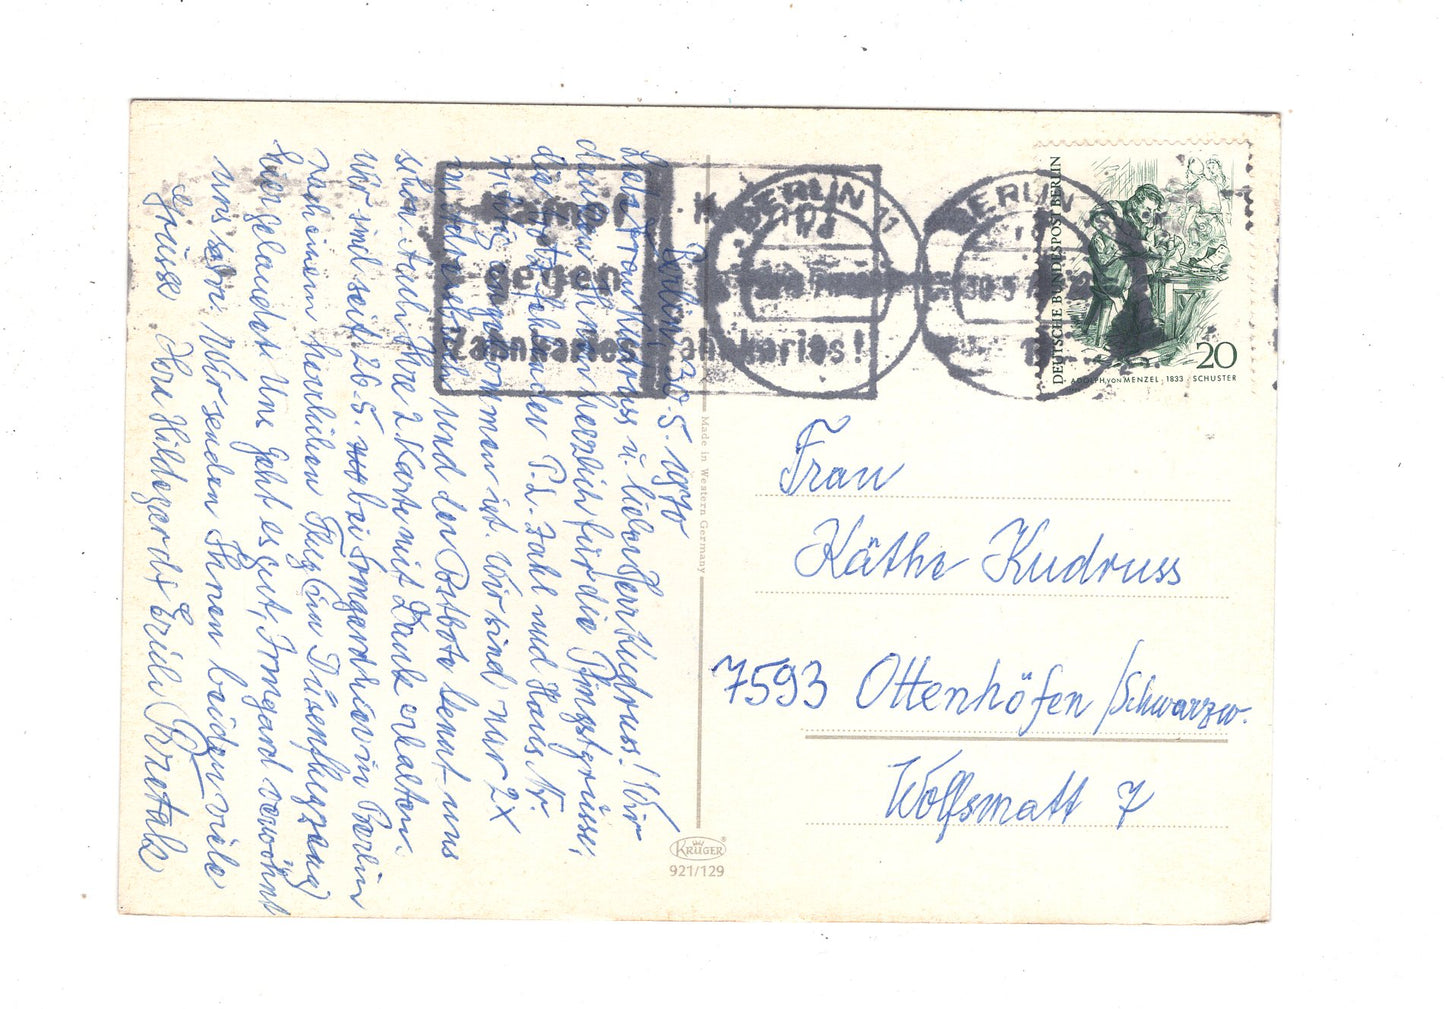 Berlin, 30.5.1970
Liebe Frau Kudruss u. lieber Herr Kudruss! Wir
danken Ihnen herzlich für die Pfingstgrüsse,
die trotz fehlender P.L. Zahl und Haus Nr.
richtig angekommen ist. Wir sind nur 2x
und der Postbote kennt uns
schon. Auch Ihre 2. Karte mit Dank erhalten.
Wir sind seit 26.5. bei Irmgard hier in Berlin
nach einem herrlichen Flug (im Düsenflugzeug)
hier gelandet. Uns geht es gut, Irmgard verwöhnt
uns sehr. Wir senden Ihnen beiden viele
Grüsse Ihre Hildegard u. Erich
Kampf
gegen
Zahnkaries
Zahnkaries!
BERLIN 11
BERLIN
30.5.
DEUTSCHE BUNDESPOST BERLIN
20
ADOLPH VON MENZEL · 1833 / SCHUSTER
Made in Western Germany
Frau
Käthe Kudruss
7593 Ottenhöfen /Schwarzw.
Wolfsmatt 7
KRÜGER
921/129